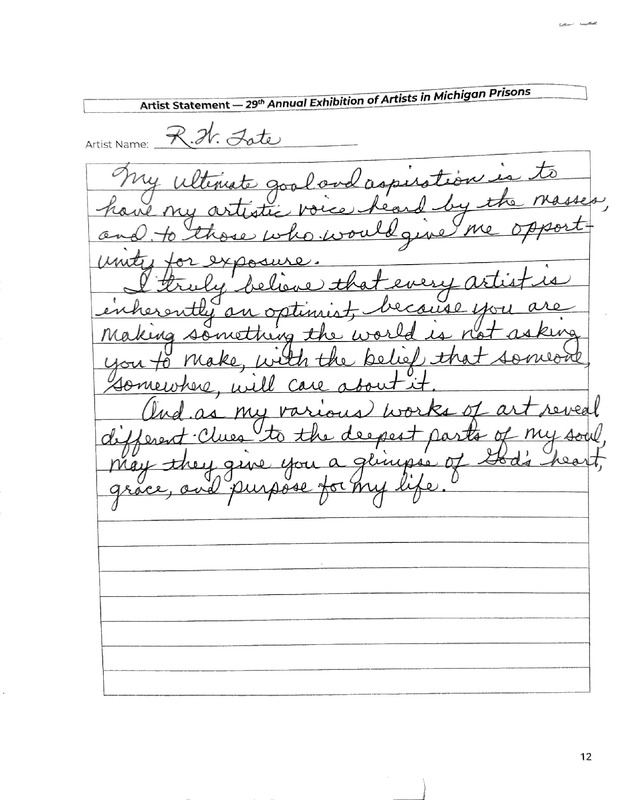 Artist Statement — 29th Annual Exhibition of Artists in Michigan Prisons
Artist Name: R.W. Tate
My ultimate goal and aspiration is to
have my artistic voice heard by the masses,
and to those who would give me opport-
unity for exposure.
I truly believe that every artist is
inherently an optimist, because you are
making something the world is not asking
you to make, with the belief that someone,
somewhere, will care about it.
And as my various works of art reveal
different clues to the deepest parts of my soul,
may they give you a glimpse of God's heart,
grace, and purpose for my life.
12